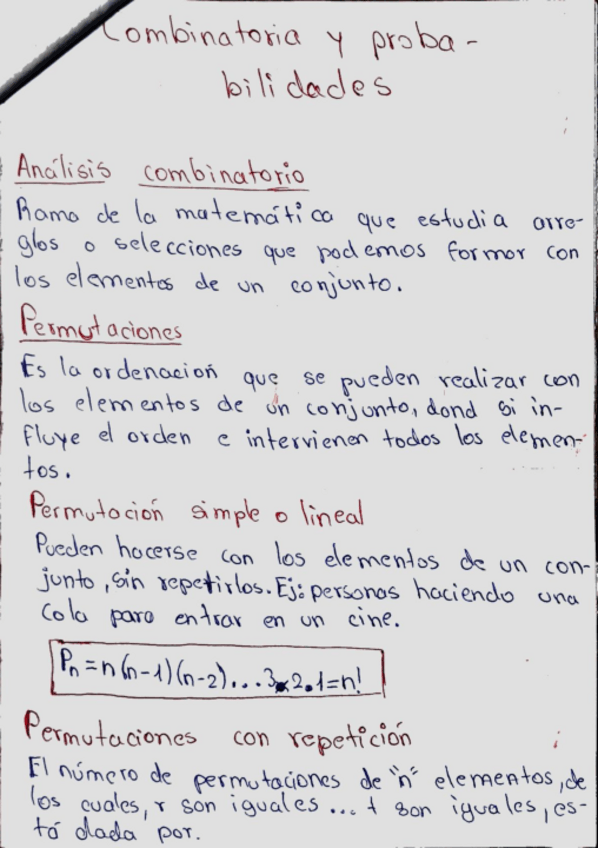 Combinatoria y proba-
bilidades
Análisis combinatorio
Rama de la matemática que estudia arre-
glos o selecciones que podemos formar con
los elementos de un conjunto.
Permutaciones
Es la ordenación que se pueden realizar con
los elementos de un conjunto, dond si in-
fluye el orden e intervienen todos los elemen-
tos.
Permutación simple o lineal
Pueden hacerse con los elementos de un con-
junto, sin repetirlos. Ej: personas haciendo una
cola para entrar en un cine.
Pn = n(n-1)(n-2)...3x2.1=n!
Permutaciones con repetición
El número de permutaciones de "n" elementos, de
los cuales, r son iguales ... t son iguales, es-
tá dada por.